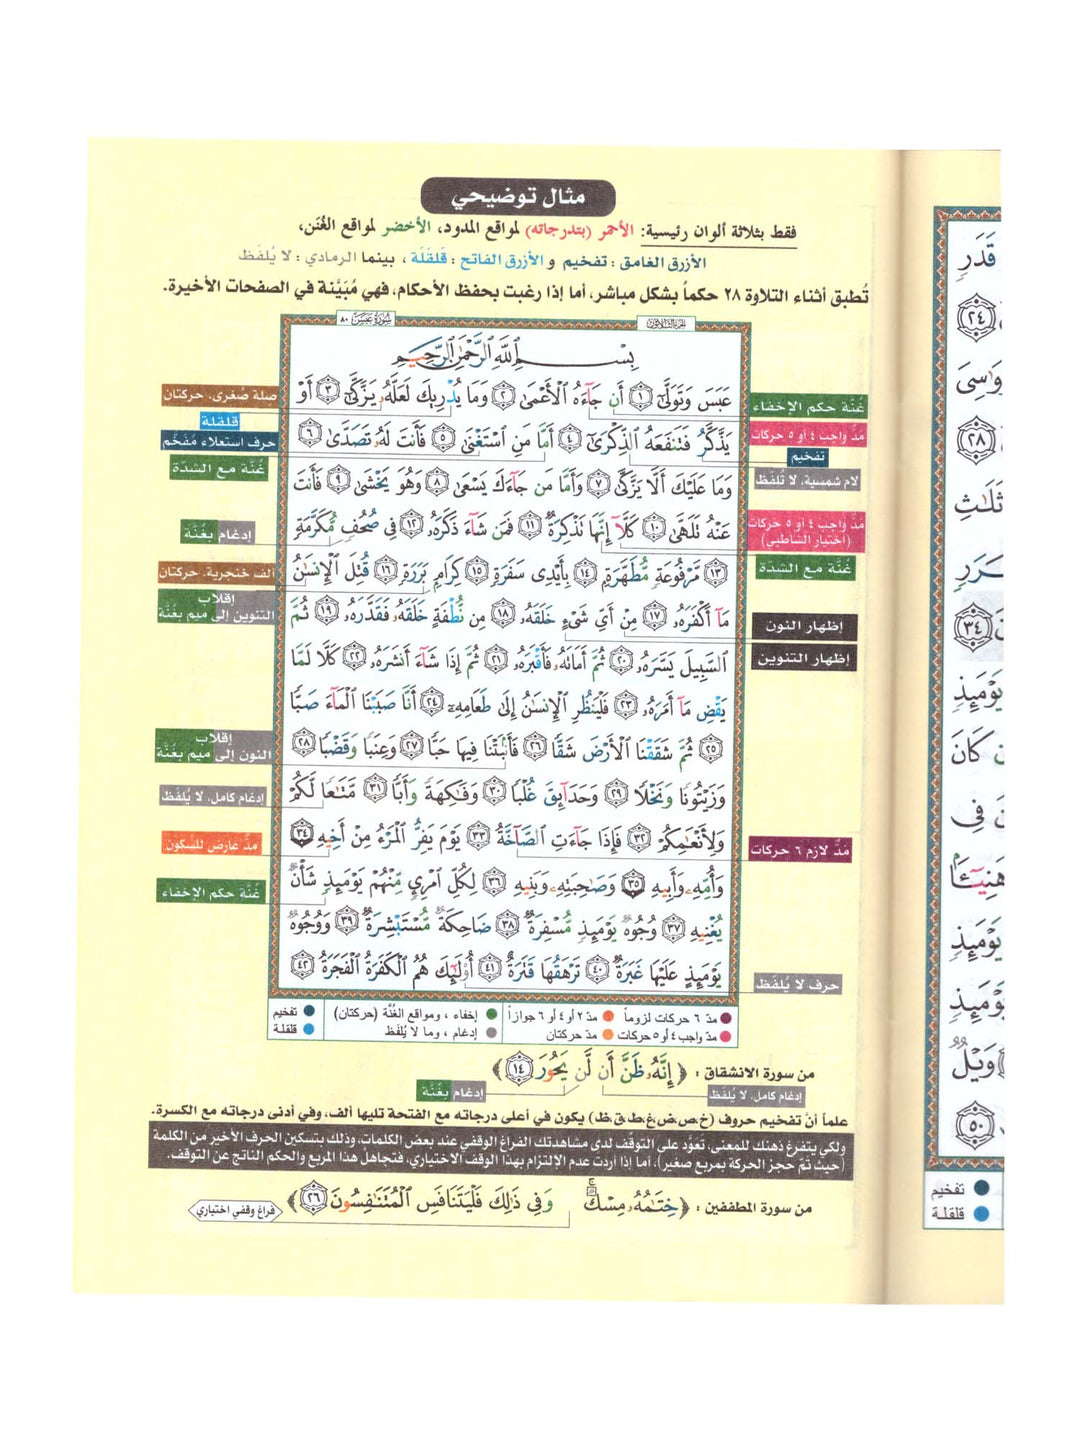 مثال توضيحي
فقط بثلاثة ألوان رئيسية: الأحمر (بتدرجاته) لمواقع المدود، الأخضر لمواقع الغُنَن،
الأزرق الغامق : تفخيم و الأزرق الفاتح : قَلقَلَة ، بينما الرمادي : لا يُلفَظ
تُطبق أثناء التلاوة ٢٨ حكماً بشكل مباشر، أما إذا رغبت بحفظ الأحكام، فهي مُبَيَّنة في الصفحات الأخيرة.
الجزء الثلاثون
سورة عبس ٨٠
بِسْمِ اللَّهِ الرَّحْمَٰنِ الرَّحِيمِ
عَبَسَ وَتَوَلَّىٰٓ ١ أَن جَآءَهُ ٱلْأَعْمَىٰ ٢ وَمَا يُدْرِيكَ لَعَلَّهُۥ يَزَّكَّىٰٓ ٣ أَوْ
يَذَّكَّرُ فَتَنفَعَهُ ٱلذِّكْرَىٰٓ ٤ أَمَّا مَنِ ٱسْتَغْنَىٰ ٥ فَأَنتَ لَهُۥ تَصَدَّىٰ ٦
وَمَا عَلَيْكَ أَلَّا يَزَّكَّىٰ ٧ وَأَمَّا مَن جَآءَكَ يَسْعَىٰ ٨ وَهُوَ يَخْشَىٰ ٩ فَأَنتَ
عَنْهُ تَلَهَّىٰ ١٠ كَلَّآ إِنَّهَا تَذْكِرَةٌ ١١ فَمَن شَآءَ ذَكَرَهُۥ ١٢ فِى صُحُفٍ مُّكَرَّمَةٍ
١٣ مَّرْفُوعَةٍ مُّطَهَّرَةٍۭ ١٤ بِأَيْدِى سَفَرَةٍ ١٥ كِرَامٍۭ بَرَرَةٍ ١٦ قُتِلَ ٱلْإِنسَٰنُ
مَآ أَكْفَرَهُۥ ١٧ مِنْ أَىِّ شَىْءٍ خَلَقَهُۥ ١٨ مِن نُّطْفَةٍ خَلَقَهُۥ فَقَدَّرَهُۥ ١٩ ثُمَّ
ٱلسَّبِيلَ يَسَّرَهُۥ ٢٠ ثُمَّ أَمَاتَهُۥ فَأَقْبَرَهُۥ ٢١ ثُمَّ إِذَا شَآءَ أَنشَرَهُۥ ٢٢ كَلَّا لَمَّا
يَقْضِ مَآ أَمَرَهُۥ ٢٣ فَلْيَنظُرِ ٱلْإِنسَٰنُ إِلَىٰ طَعَامِهِۦٓ ٢٤ أَنَّا صَبَبْنَا ٱلْمَآءَ صَبًّا
٢٥ ثُمَّ شَقَقْنَا ٱلْأَرْضَ شَقًّا ٢٦ فَأَنۢبَتْنَا فِيهَا حَبًّا ٢٧ وَعِنَبًا وَقَضْبًا ٢٨
وَزَيْتُونًا وَنَخْلًا ٢٩ وَحَدَآئِقَ غُلْبًا ٣٠ وَفَٰكِهَةً وَأَبًّا ٣١ مَّتَٰعًا لَّكُمْ
وَلِأَنْعَٰمِكُمْ ٣٢ فَإِذَا جَآءَتِ ٱلصَّآخَّةُ ٣٣ يَوْمَ يَفِرُّ ٱلْمَرْءُ مِنْ أَخِيهِ ٣٤
وَأُمِّهِۦ وَأَبِيهِ ٣٥ وَصَٰحِبَتِهِۦ وَبَنِيهِ ٣٦ لِكُلِّ ٱمْرِئٍ مِّنْهُمْ يَوْمَئِذٍ شَأْنٌ
يُغْنِيهِ ٣٧ وُجُوهٌ يَوْمَئِذٍ مُّسْفِرَةٌ ٣٨ ضَاحِكَةٌ مُّسْتَبْشِرَةٌ ٣٩ وَوُجُوهٌ
يَوْمَئِذٍ عَلَيْهَا غَبَرَةٌ ٤٠ تَرْهَقُهَا قَتَرَةٌ ٤١ أُو۟لَٰٓئِكَ هُمُ ٱلْكَفَرَةُ ٱلْفَجَرَةُ ٤٢
غُنَّة حكم الإخفاء
مَدّ واجب ٤ او ٥ حركات
تفخيم
لام شمسية، لا تُلفَظ
مَدّ واجب ٤ او ٥ حركات
(اختيار الشاطبي)
غُنَّة مع الشدّة
إظهار النون
إظهار التنوين
مَدّ لازم ٦ حركات
حرف لا يُلفَظ
صلة صُغرى، حركتان
قلقلة
حرف استعلاء مُفَخَّم
غُنَّة مع الشدّة
إدغام بغُنَّة
الف خنجرية، حركتان
إقلاب
التنوين إلى ميم بغُنَّة
إقلاب
النون إلى ميم بغُنَّة
إدغام كامل، لا يُلفَظ
مَدّ عارض للسكون
غُنَّة حكم الإخفاء
مدّ ٦ حركات لزوماً
مدّ ٢ أو ٤ أو ٦ جوازاً
إخفاء ، ومواقع الغُنَّة (حركتان)
تفخيم
مدّ واجب ٤ أو ٥ حركات
مدّ حركتان
إدغام ، وما لا يُلفَظ
قلقلة
من سورة الانشقاق : ﴿ إِنَّهُۥ ظَنَّ أَن لَّن يَحُورَ ١٤ ﴾
إدغام كامل، لا يُلفَظ
إدغام بغُنَّة
علماً أنّ تفخيم حروف (خ،ص،ض،غ،ط،ق،ظ) يكون في أعلى درجاته مع الفتحة تليها ألف، وفي أدنى درجاته مع الكسرة.
ولكي يتفرغ ذهنك للمعنى، تعوَّد على التوقُف لدى مشاهدتك الفراغ الوقفي عند بعض الكلمات، وذلك بتسكين الحرف الأخير من الكلمة
(حيث تمَّ حجز الحركة بمربع صغير)، أما إذا أردت عدم الالتزام بهذا الوقف الاختياري، فتجاهل هذا المربع والحكم الناتج عن التوقف.
من سورة المطففين : ﴿ خِتَٰمُهُۥ مِسْكٌ ۚ وَفِى ذَٰلِكَ فَلْيَتَنَافَسِ ٱلْمُتَنَٰفِسُونَ ٢٦ ﴾
فراغ وقفي اختياري
قَدَرٍ
٢٤
٢٨
ثَلَٰثِ
٣٤
يَوْمَئِذٍ
كَانَ
فِى
هَنِيٓـًٔا
يَوْمَئِذٍ
يَوْمَئِذٍ
وَيْلٌ
٥٠
تفخيم
قلقلة